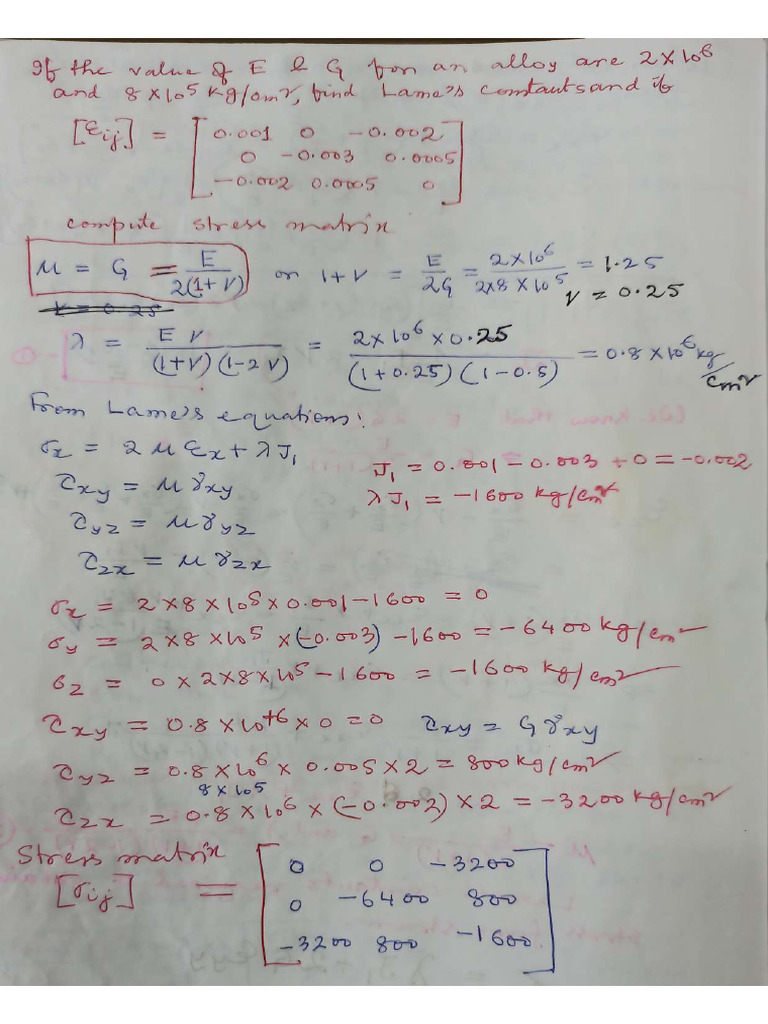 If the value of E & G for an alloy are 2×10⁶
and 8×10⁵ kg/cm², find Lame's constants and if
[εij] = [0.001 0 -0.002
0 -0.003 0.0005
-0.002 0.0005 0]
compute stress matrix
μ = G = E/2(1+ν) or 1+ν = E/2G = 2×10⁶/2×8×10⁵ = 1.25
ν = 0.25
ν = 0.25
λ = Eν/(1+ν)(1-2ν) = 2×10⁶×0.25/(1+0.25)(1-0.5) = 0.8×10⁶ kg/cm²
From Lame's equations:
σx = 2μεx + λJ₁
J₁ = 0.001 - 0.003 + 0 = -0.002
τxy = μγxy
λJ₁ = -1600 kg/cm²
τyz = μγyz
τzx = μγzx
σx = 2×8×10⁵×0.001-1600 = 0
σy = 2×8×10⁵×(-0.003)-1600 = -6400 kg/cm²
σz = 0×2×8×10⁵-1600 = -1600 kg/cm²
τxy = 0.8×10⁺⁶×0=0 τxy = Gγxy
τyz = 0.8×10⁶×0.005×2 = 800kg/cm²
8×10⁵
τzx = 0.8×10⁶×(-0.002)×2 = -3200kg/cm²
Stress matrix
[σij] = [0 0 -3200
0 -6400 800
-3200 800 -1600]